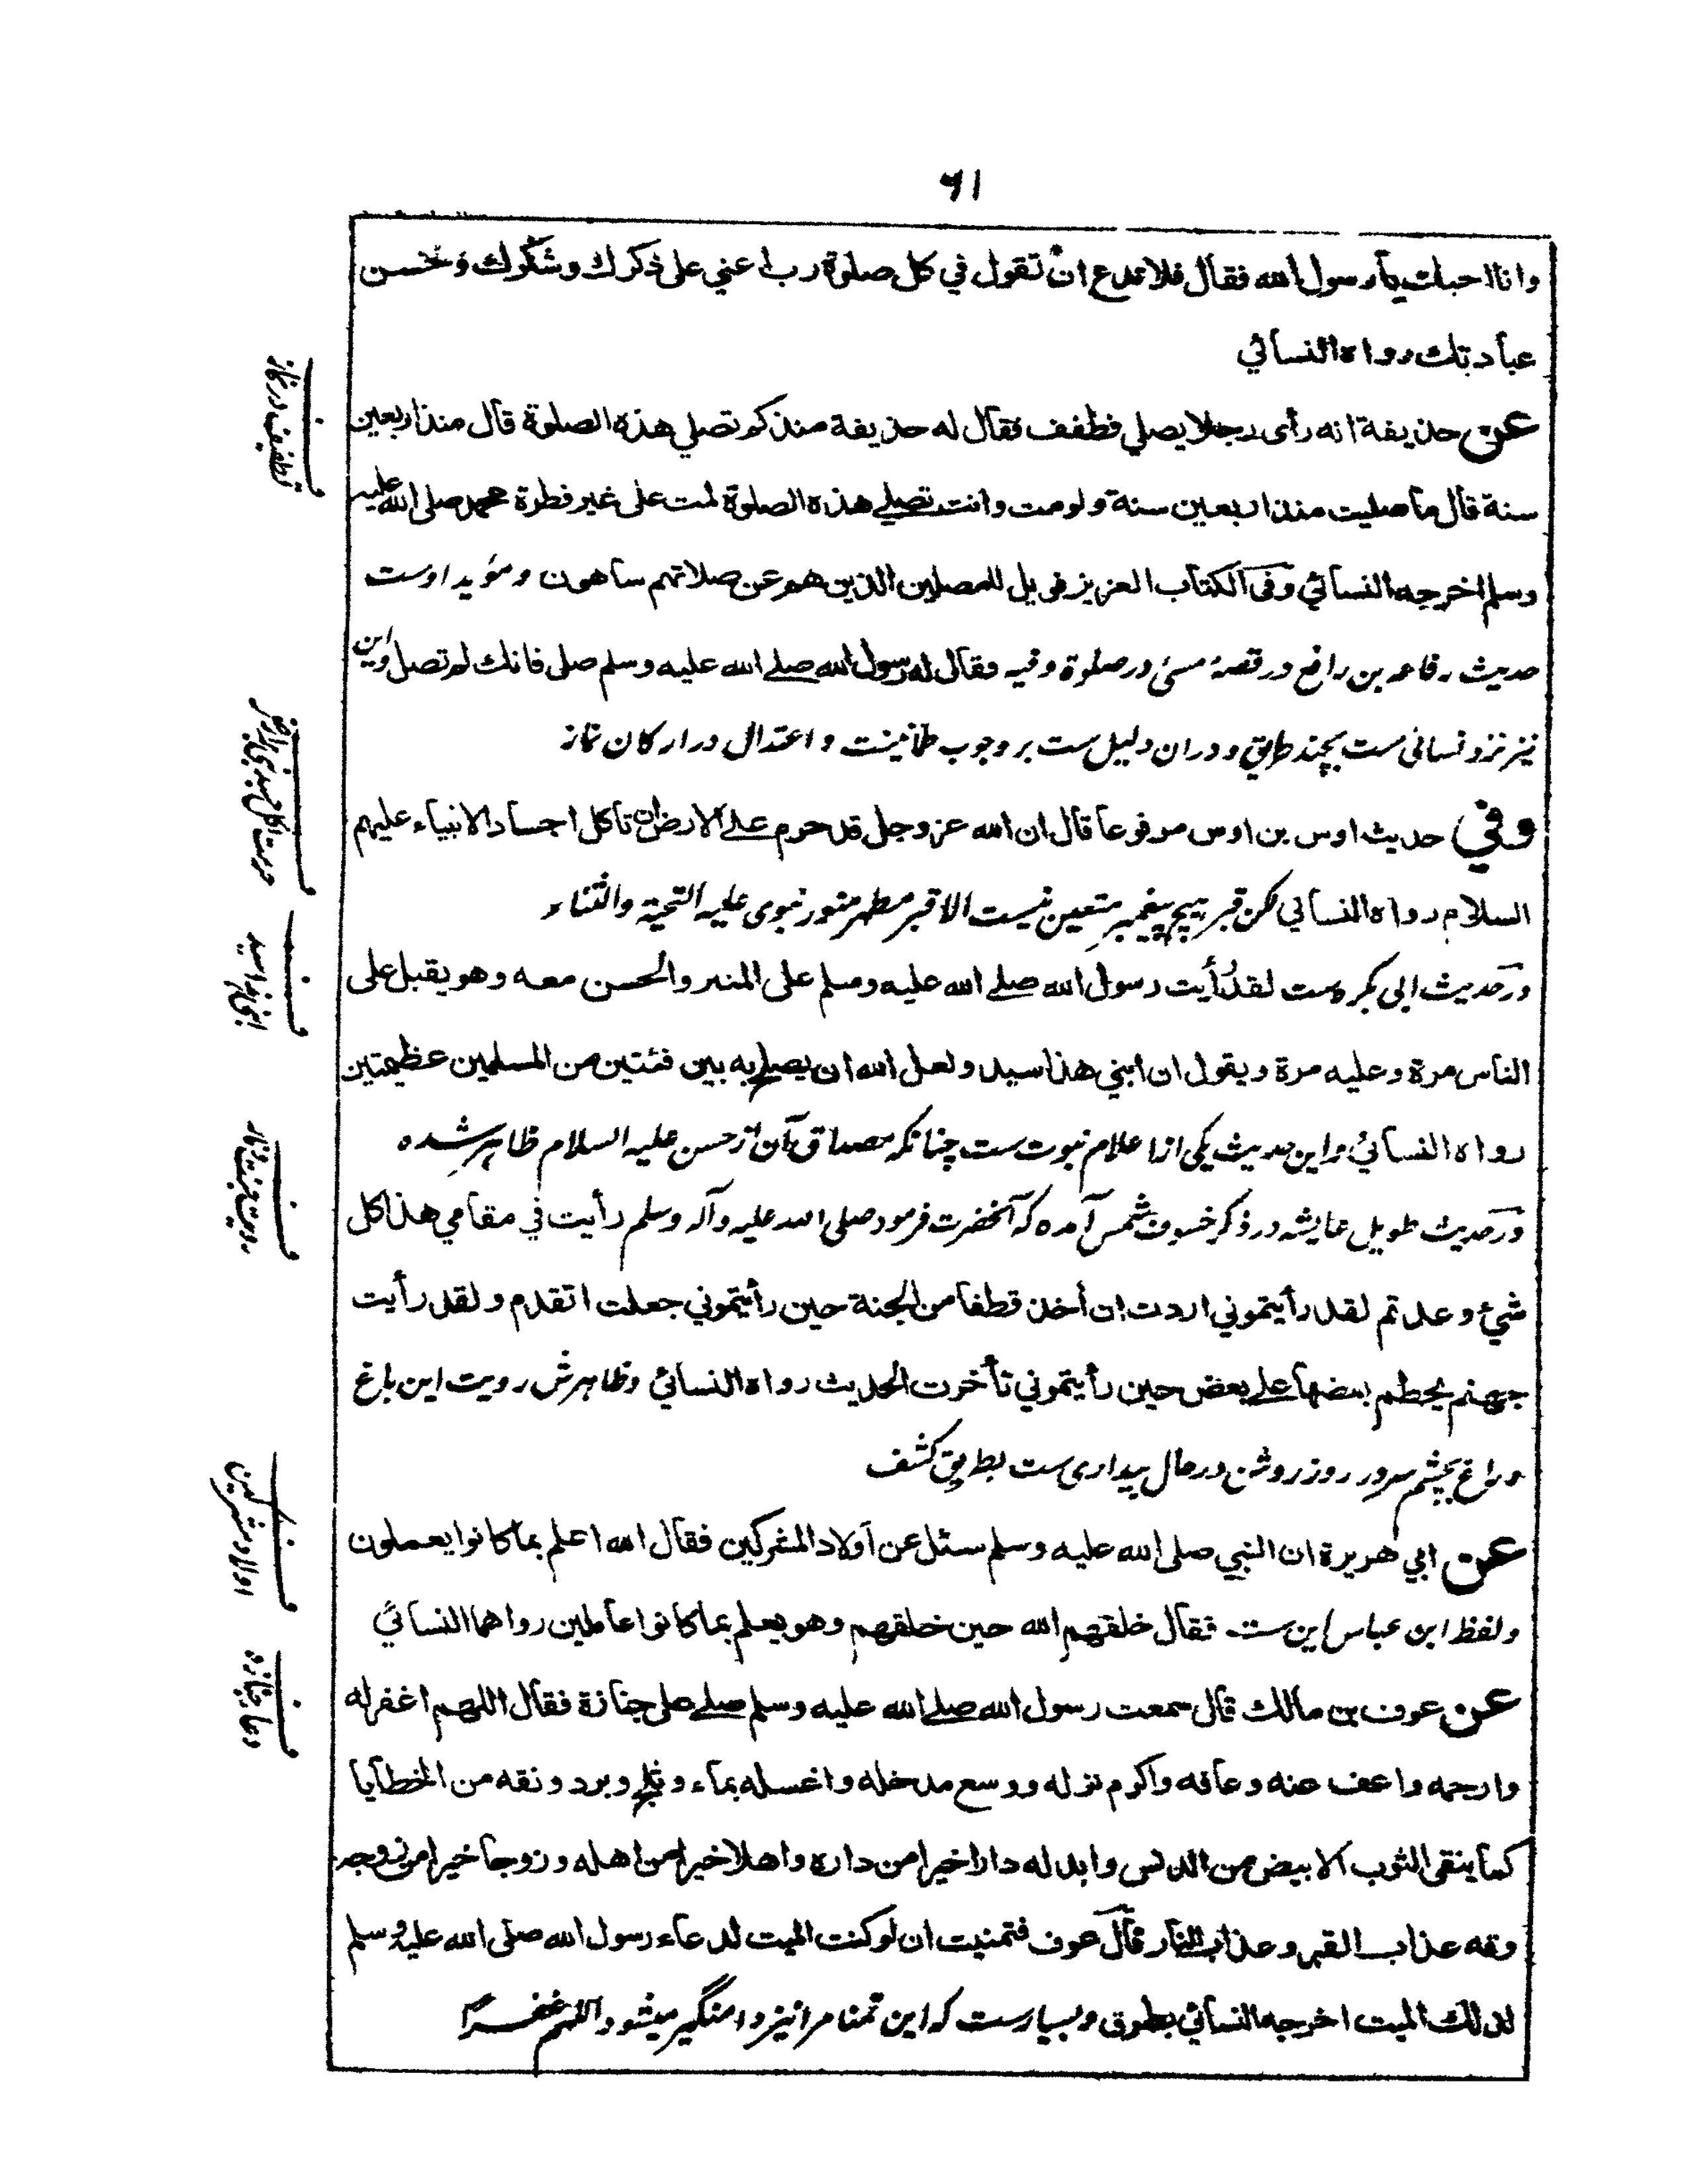 ٦١
وانا احبك يا رسول الله فقال فلا تدع ان تقول في كل صلوة رب اعني على ذكرك وشكرك وحسن
عبادتك رواه النسائي
عن حذيفة انه رأى رجلا يصلي فطفف فقال له حذيفة منذ كم تصلي هذه الصلوة قال منذ اربعين
سنة قال ما صليت منذ اربعين سنة ولو مت وانت تصلي هذه الصلوة لمت على غير فطرة محمد صلى الله عليه
وسلم اخرجه النسائي وفي الكتاب العزيز فويل للمصلين الذين هم عن صلاتهم ساهون ومؤيد اوست
حديث رفاعه بن رافع در قصۀ مسئ در صلوة وفيه فقال له رسول الله صلى الله عليه وسلم صلى فانك لم تصل واين
نيز نزد نسائى ست بچند طريق ودران دليل ست بر وجوب طمانينت و اعتدال در اركان نماز
وفي حديث اوس بن اوس مرفوعا قال ان الله عز وجل قد حرم على الارض ان تاكل اجساد الانبياء عليهم
السلام رواه النسائي لكن قبر هيچ پيغمبر متعين نيست الا قبر مطهر منور نبوى عليه التحية والثناء
ودر حديث ابى بكره ست لقد رأيت رسول الله صلى الله عليه وسلم على المنبر والحسن معه وهو يقبل على
الناس مرة وعليه مرة ويقول ان ابني هذا سيد ولعل الله ان يصلح به بين فئتين من المسلمين عظيمتين
رواه النسائي واين حديث يكى از اعلام نبوت ست چنانكه مصداق آن از حسن عليه السلام ظاهر شده
ودر حديث طويل عايشه در ذكر خسوف شمس آمده كه آنحضرت فرمود صلى الله عليه وآله وسلم رأيت في مقامي هذا كل
شيئ وعدتم لقد رأيتموني اردت ان أخذ قطفا من الجنة حين رأيتموني جعلت اتقدم ولقد رأيت
جهنم يحطم بعضها على بعض حين رأيتموني تأخرت الحديث رواه النسائي وظاهرش رويت اين باغ
وراغ بچشم سر در روز روشن در حال بيدارى ست بطريق كشف
عن ابي هريرة ان النبي صلى الله عليه وسلم سئل عن اولاد المشركين فقال الله اعلم بما كانوا يعملون
ولفظ ابن عباس اين ست فقال خلقهم الله حين خلقهم وهو يعلم بما كانوا عاملين رواهما النسائي
عن عوف بن مالك قال سمعت رسول الله صلى الله عليه وسلم صلى على جنازة فقال اللهم اغفر له
وارحمه واعف عنه وعافه واكرم نزله ووسع مدخله واغسله بماء وثلج وبرد ونقه من الخطايا
كما ينقى الثوب الابيض من الدنس وابدله دارا خيرا من داره واهلا خيرا من اهله وزوجا خيرا من زوجه
وقه عذاب القبر وعذاب النار قال عوف فتمنيت ان لو كنت الميت لدعاء رسول الله صلى الله عليه وسلم
لذلك الميت اخرجه النسائي بطرق وبسيارست كه اين تمنا مرا نيز دامنگير ميشود اللهم غفرا
تطفيف در نماز
حرمت اكل جسد نبى بر ارض
ابنى هذا سيد
رويت جنت ونار
اولاد مشركين
دعا جنازه